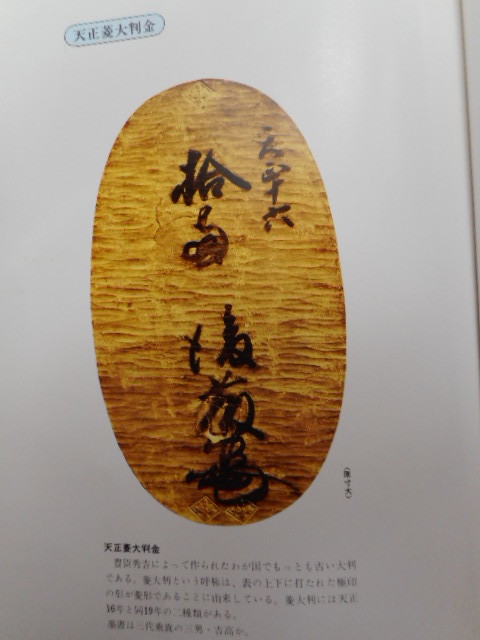 天正菱大判金
天正十六
拾両
後藤
(原寸大)
天正菱大判金
豊臣秀吉によって作られたわが国でもっとも古い大判
である。菱大判という呼称は、表の上下に打たれた極印
の形が菱形であることに由来している。菱大判には天正
16年と同19年の二種類がある。
墨書は三代乗真の三男・吉高か。